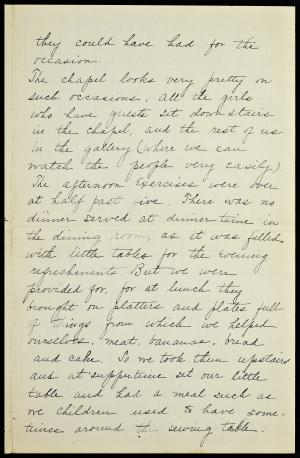 they could have had for the
occasion.
The chapel looks very pretty on
such occasions. All the girls
who have guests sit down stairs
in the chapel, and the rest of us
in the gallery (where we can
watch the people very easily).
The afternoon Exercises were over
at half past five. There was no
dinner served at dinner time in
the dining room, as it was filled
with little tables for the evening
refreshments. But we were
provided for, for at lunch they
brought on platters and plates full
of things from which we helped
ourselves, meat, bananas, bread
and cake. So we took them upstairs
and at suppertime set our little
table and had a meal such as
we children used to have some-
times around the sewing table.